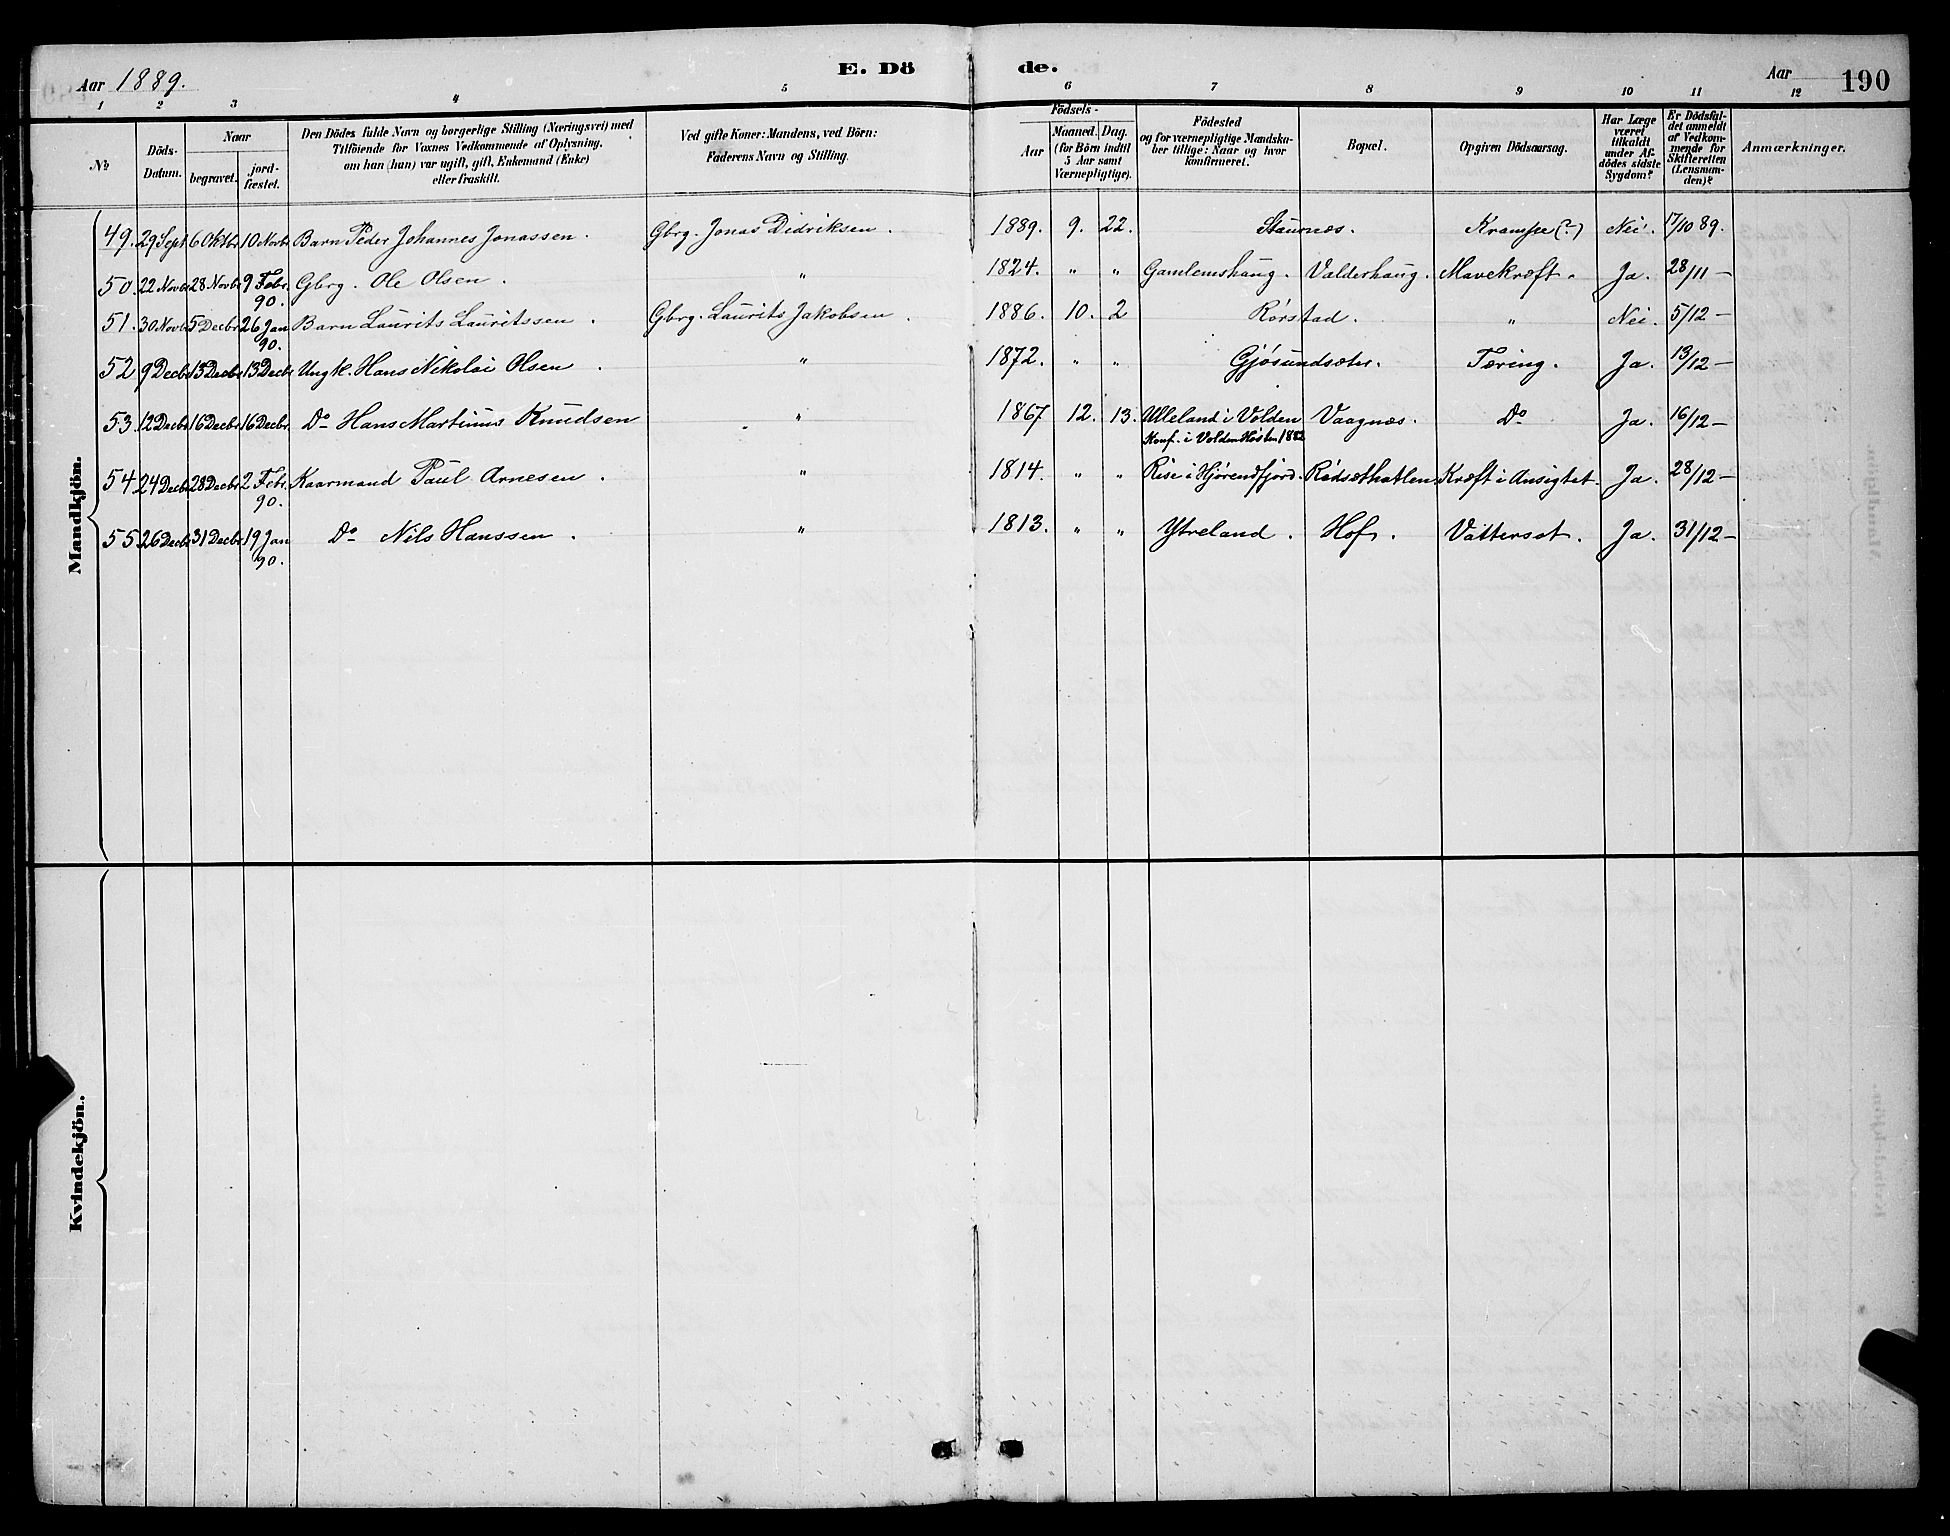 Aar 1889. E. Dö de. Aar 190
1 2 3 4 5 6 7 8 9 10 11 12
№ Döds-Datum. Naar begravet. jord-fæstet. Den Dödes fulde Navn og borgerlige Stilling (Næringsvei) med Tilföiende for Voxnes Vedkommende af Oplysning, om han (hun) var ugift, gift, Enkemand (Enke) eller fraskilt. Ved gifte Koner: Mandens, ved Börn: Faderens Navn og Stilling. Födsels- Aar Maaned. Dag. (for Börn indtil 5 Aar samt Værnepligtige). Födested og for værnepligtige Mandskaber tillige: Naar og hvor konfirmeret. Bopæl. Opgiven Dödsaarsag. Har Læge været tilkaldt under Afdödes sidste Sygdom? Er Dödsfaldet anmeldt af Vedkommende for Skifteretten (Lensmanden)? Anmærkninger.
Mandkjön.
49. 29 Sept 6 Oktbr 10 Novbr Barn Peder Johannes Jonassen. Gbrg. Jonas Didriksen. 1889. 9. 22. Staurnæs. Krampe (?) Nei. 17/10 89.
50. 22 Novbr 28 Novbr 9 Febr. 90. Gbrg. Ole Olsen. " 1824. " " Gamlemshaug. Valderhaug. Mavekræft. Ja. 28/11 —
51. 30 Novbr 5 Decbr 26 Jan 90. Barn Laurits Lauritssen. Gbrg. Laurits Jakobsen. 1886. 10. 2 Rørstad. " Nei. 5/12 —
52 9 Decbr 13 Decbr 13 Decbr Ungk. Hans Nikolai Olsen. " 1872. " " Gjøsundsæter. Tæring. Ja. 13/12 —
53. 12 Decbr 16 Decbr 16 Decbr. Do Hans Martinus Knudsen " 1867 12. 13. Ulleland i Volden Konf. i Volden Høsten 1882 Vaagnæs. Do Ja. 16/12 —
54. 24 Decbr 28 Decbr 2 Febr. 90. Kaarmand Paul Arnesen. " 1814. " " Rise i Hjørendfjord. Rødsæthatlen Kræft i Ansigtet. Ja. 28/12 —
55. 26 Decbr 31 Decbr 19 Jan 90. Do Nils Hanssen. " 1813. " " Ytreland. Hof. Vattersot. Ja. 31/12 —
Kvindekjön.